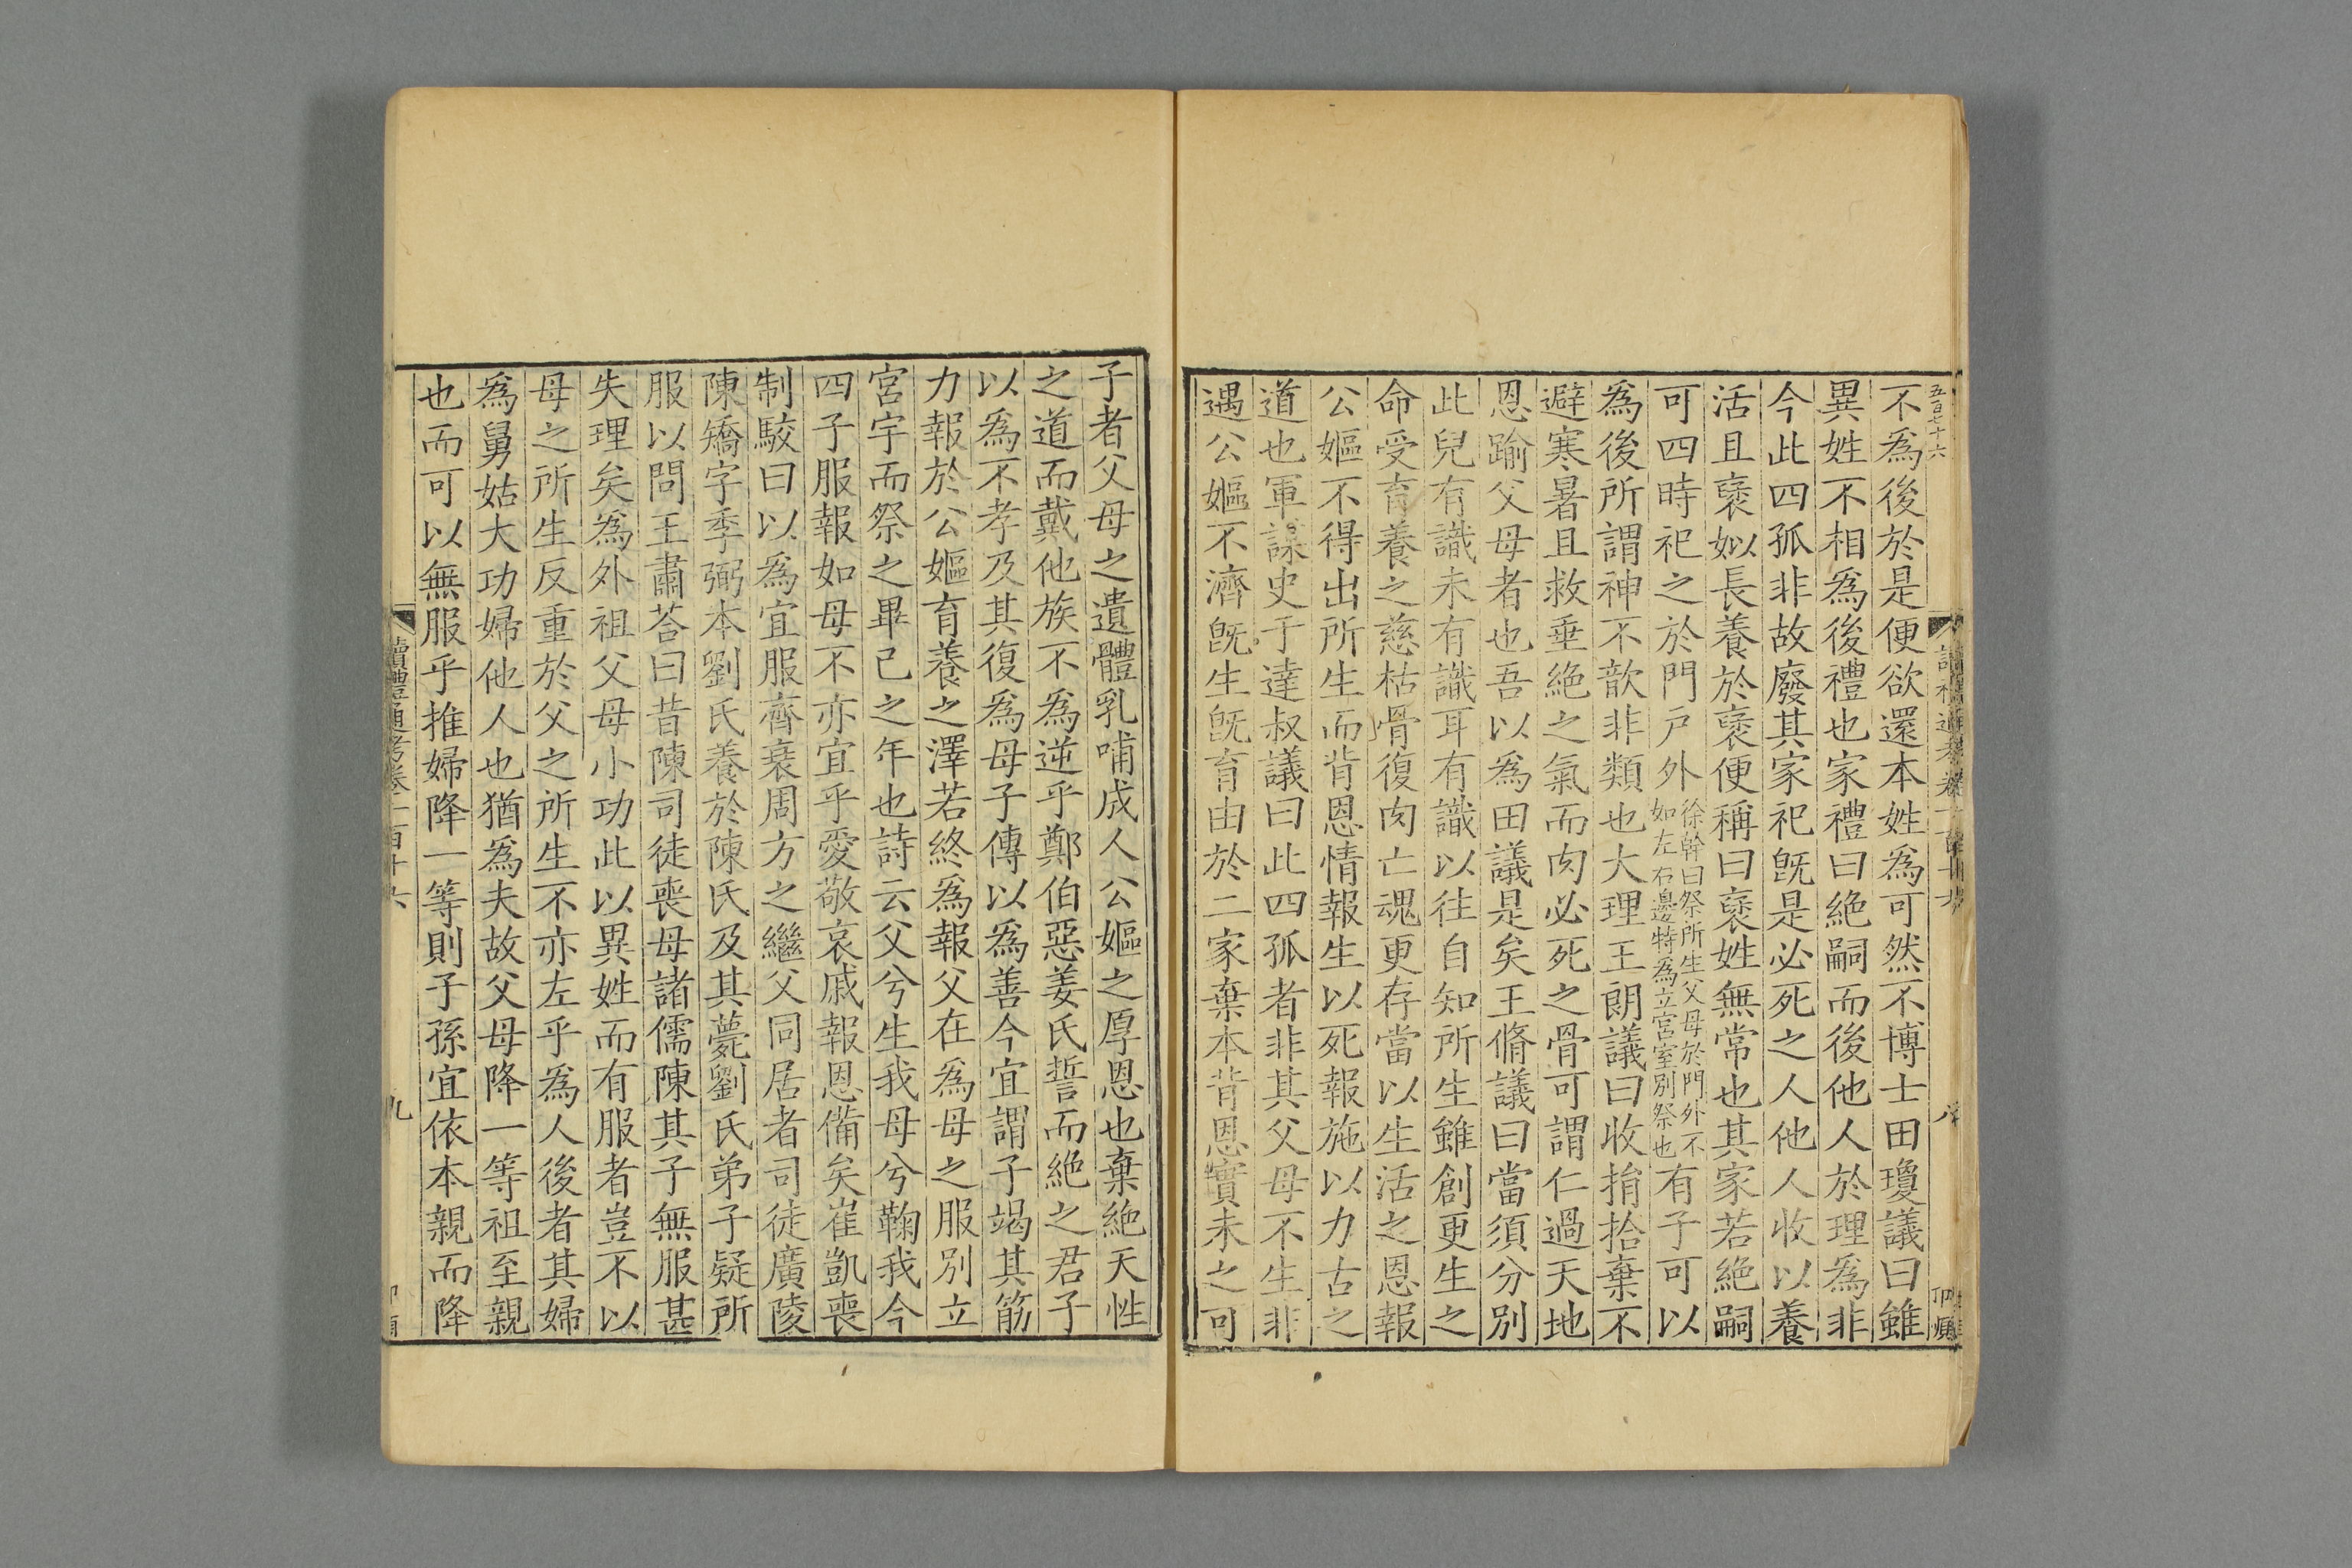 五百七十六
不爲後於是便欲還本姓爲可然不博士田瓊議曰雖
異姓不相爲後禮也家禮曰絶嗣而後他人於理爲非
今此四孤非故廢其家祀旣是必死之人他人收以養
活且褒姒長養於褒便稱曰褒姓無常也其家若絶嗣
可四時祀之於門戶外徐幹曰祭所生父母於門外不如左右邊特爲立宮室別祭也有子可以
爲後所謂神不歆非類也大理王朗議曰收捐拾棄不
避寒暑且救垂絶之氣而肉必死之骨可謂仁過天地
恩踰父母者也吾以爲田議是矣王脩議曰當須分別
此兒有識未有識耳有識以往自知所生雖創更生之
命受育養之慈枯骨復肉亡魂更存當以生活之恩報
公嫗不得出所生而背恩情報生以死報施以力古之
道也軍謀史于達叔議曰此四孤者非其父母不生非
遇公嫗不濟旣生旣育由於二家棄本背恩實未之可
子者父母之遺體乳哺成人公嫗之厚恩也棄絶天性
之道而戴他族不爲逆乎鄭伯惡姜氏誓而絶之君子
以爲不孝及其復爲母子傳以爲善今宜謂子竭其筋
力報於公嫗育養之澤若終爲報父在爲母之服別立
宮宇而祭之畢己之年也詩云父兮生我母兮鞠我今
四子服報如母不亦宜乎愛敬哀戚報恩備矣崔凱喪
制駮曰以爲宜服齊衰周方之繼父同居者司徒廣陵
陳矯字季弼本劉氏養於陳氏及其薨劉氏弟子疑所
服以問王肅荅曰昔陳司徒喪母諸儒陳其子無服甚
失理矣爲外祖父母小功此以異姓而有服者豈不以
母之所生反重於父之所生不亦左乎爲人後者其婦
爲舅姑大功婦他人也猶爲夫故父母降一等祖至親
也而可以無服乎推婦降一等則子孫宜依本親而降
讀禮通考卷一百十六
九